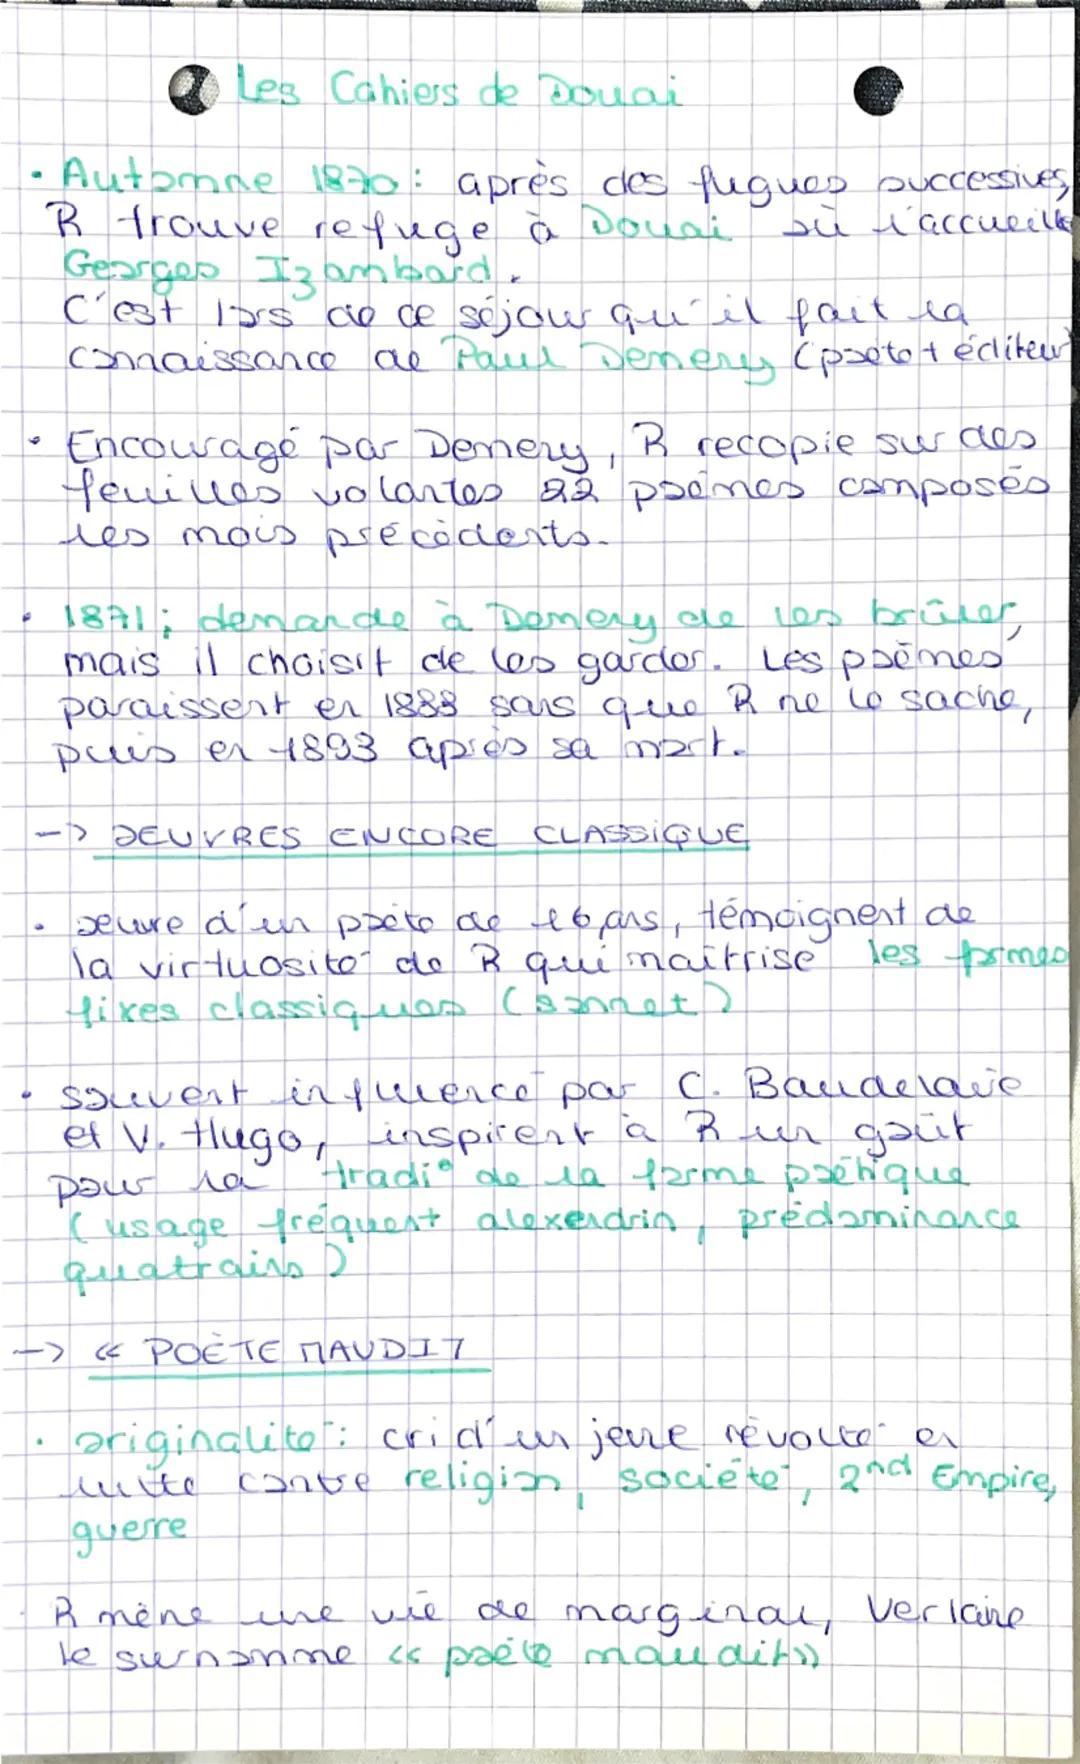 Les Cahiers de Douai
• Automne 1870 : après des fugues successives,
R trouve refuge à Douai où l'accueille
Georges Izambard.
C'est lors de ce séjour qu'il fait la
connaissance de Paul Demeny (poète + éditeur)
• Encouragé par Demeny, R recopie sur des
feuilles volantes 22 poèmes composés
les mois précédents.
• 1871 ; demande à Demeny de les brûler,
mais il choisit de les garder. Les poèmes
paraissent en 1888 sans que R ne le sache,
puis en 1893 après sa mort.
-> OEUVRES ENCORE CLASSIQUE
• oeuvre d'un poète de 16 ans, témoignent de
la virtuosité de R qui maîtrise les formes
fixes classiques (sonnet)
• souvent influencé par C. Baudelaire
et V. Hugo, inspirent à R un goût
pour la tradi° de la forme poétique
(usage fréquent alexendrin, prédominance
quatrains)
-> « POÈTE MAUDIT
• originalité : cri d'un jeune révolté en
lutte contre religion, société, 2nd Empire,
guerre
R mène une vie de marginal, Verlaine
le surnomme « poète maudit »